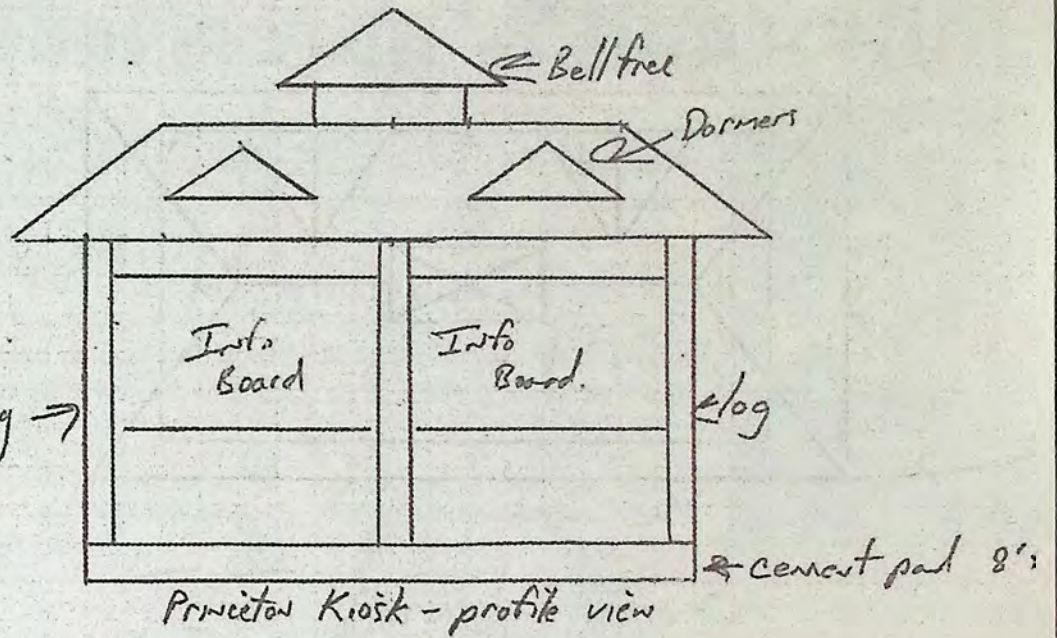 Bellfree
Dormers
Info
Board
Info
Board.
g
log
cement pad 8'
Princeton Kiosk - profile view